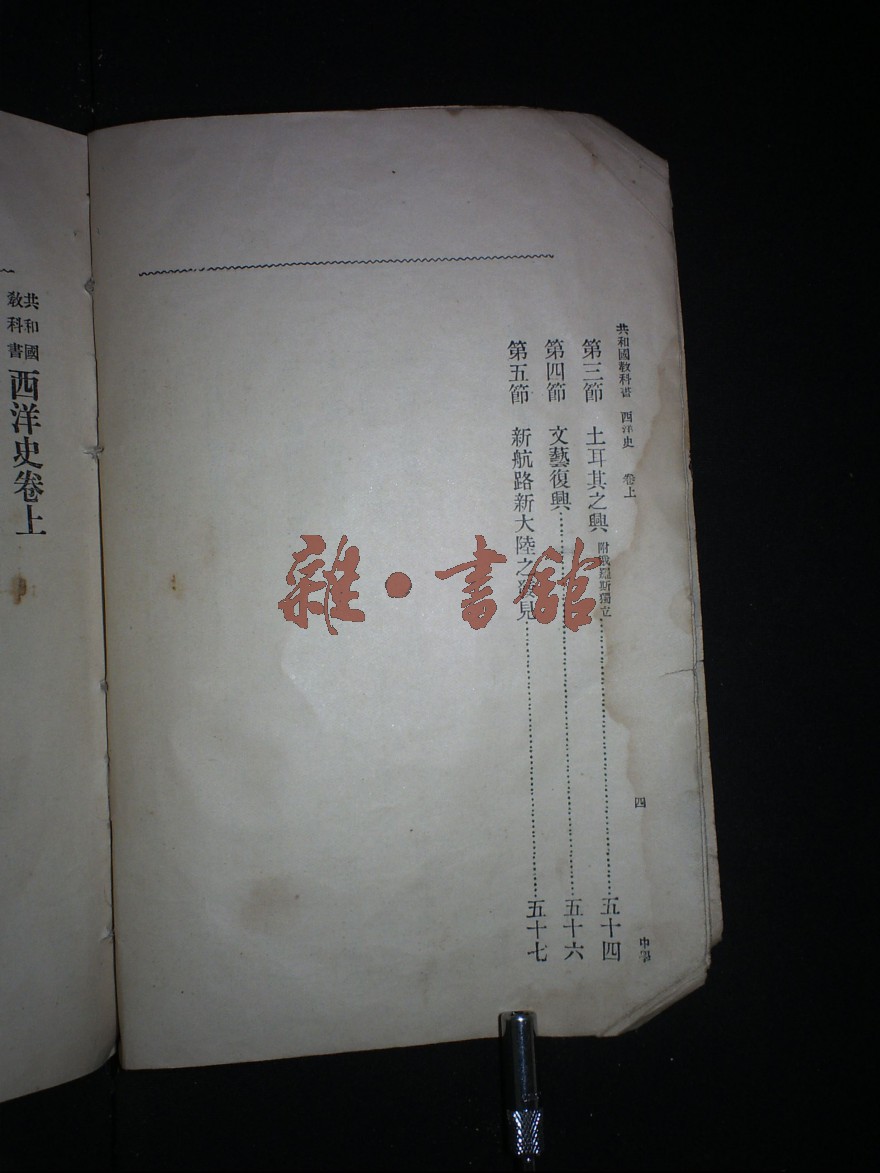 共和國教科書 西洋史 卷上
四
中學
第三節 土耳其之興 附俄羅斯獨立……五十四
第四節 文藝復興……五十六
第五節 新航路新大陸之發見……五十七
共和國
教科書
西洋史卷上
雜·書館